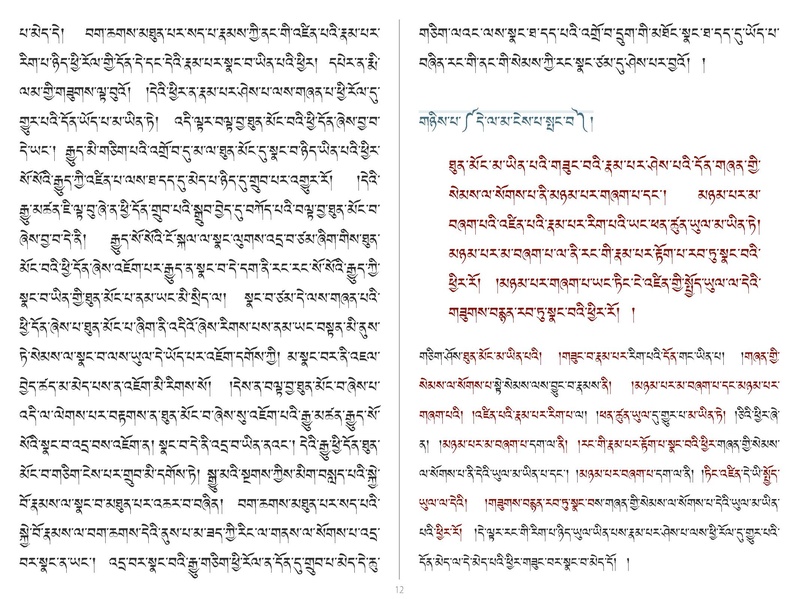 པ་མེད་དེ། བག་ཆགས་མཐུན་པར་སད་པ་རྣམས་ཀྱི་ནང་གི་འཛིན་པའི་རྣམ་པར་
རིག་པ་ཉིད་ཕྱི་རོལ་གྱི་དོན་དེ་དང་དེའི་རྣམ་པར་སྣང་བ་ཡིན་པའི་ཕྱིར། དཔེར་ན་རྨི་
ལམ་གྱི་གཟུགས་ལྟ་བུའོ། །དེའི་ཕྱིར་ན་རྣམ་པར་ཤེས་པ་ལས་གཞན་པ་ཕྱི་རོལ་དུ་
གྱུར་པའི་དོན་ཡོད་པ་མ་ཡིན་ཏེ། འདི་ལྟར་བལྟ་བྱ་ཐུན་མོང་བའི་ཕྱི་དོན་ཞེས་བྱ་བ་
དེ་ཡང་། རྒྱུད་མི་གཅིག་པའི་འགྲོ་བ་དུ་མ་ལ་ཐུན་མོང་དུ་སྣང་བ་ཉིད་ཡིན་པའི་ཕྱིར་
སོ་སོའི་རྒྱུད་ཀྱི་འཛིན་པ་ལས་ཐ་དད་དུ་མེད་པ་ཉིད་དུ་གྲུབ་པར་འགྱུར་རོ། །དེའི་
རྒྱུ་མཚན་ཇི་ལྟ་བུ་ཞེ་ན་ཕྱི་དོན་གྲུབ་པའི་སྒྲུབ་བྱེད་དུ་བཀོད་པའི་བལྟ་བྱ་ཐུན་མོང་བ་
ཞེས་བྱ་བ་དེ་ནི། རྒྱུད་སོ་སོའི་ངོ་སྐལ་ལ་སྣང་ལུགས་འདྲ་བ་ཙམ་ཞིག་གིས་ཐུན་
མོང་བའི་ཕྱི་དོན་ཞེས་འཇོག་པར་རྒྱུད་ན་སྣང་བ་དེ་དག་ནི་རང་རང་སོ་སོའི་རྒྱུད་ཀྱི་
སྣང་བ་ཡིན་གྱི་ཐུན་མོང་པ་ནམ་ཡང་མི་སྲིད་ལ། སྣང་བ་ཙམ་དེ་ལས་གཞན་པའི་
ཕྱི་དོན་ཞེས་པ་ཐུན་མོང་པ་ཞིག་ནི་འདིའོ་ཞེས་རིགས་པས་ནམ་ཡང་བསྟན་མི་ནུས་
ཏེ་སེམས་ལ་སྣང་བ་ལས་ཡུལ་དེ་ཡོད་པར་འཇོག་དགོས་ཀྱི། མ་སྣང་བར་ནི་འཇལ་
བྱེད་ཚད་མ་མེད་པས་ན་འཇོག་མི་རིགས་སོ། །དེས་ན་བལྟ་བྱ་ཐུན་མོང་བ་ཞེས་པ་
འདི་ལ་ལེགས་པར་བརྟགས་ན་ཐུན་མོང་བ་ཞེས་སུ་འཇོག་པའི་རྒྱུ་མཚན་རྒྱུད་སོ་
སོའི་སྣང་བ་འདྲ་བས་འཇོག་ན། སྣང་བ་དེ་ནི་འདྲ་བ་ཡིན་ནའང་། དེའི་རྒྱུ་ཕྱི་དོན་ཐུན་
མོང་བ་གཅིག་ངེས་པར་གྲུབ་མི་དགོས་ཏེ། སྒྱུ་མའི་སྔགས་ཀྱིས་མིག་བསླད་པའི་སྐྱེ་
བོ་རྣམས་ལ་སྣང་བ་མཐུན་པར་འཆར་བ་བཞིན། བག་ཆགས་མཐུན་པར་སད་པའི་
སྐྱེ་བོ་རྣམས་ལ་བག་ཆགས་དེའི་ནུས་པ་མ་ཟད་ཀྱི་རིང་ལ་གནས་ལ་སོགས་པ་འདྲ་
བར་སྣང་ན་ཡང་། འདྲ་བར་སྣང་བའི་རྒྱུ་གཅིག་ཕྱི་རོལ་ན་དོན་དུ་གྲུབ་པ་མེད་དེ་ཆུ་
གཅིག་ལའང་ལས་སྣང་ཐ་དད་པའི་འགྲོ་བ་དྲུག་གི་མཐོང་སྣང་ཐ་དད་དུ་ཡོད་པ་
བཞིན་རང་གི་ནང་གི་སེམས་ཀྱི་རང་སྣང་ཙམ་དུ་ཤེས་པར་བྱའོ། །
གཉིས་པ་༼དེ་ལ་མ་ངེས་པ་སྤང་བ༽།
ཐུན་མོང་མ་ཡིན་པའི་གཟུང་བའི་རྣམ་པར་ཤེས་པའི་དོན་གཞན་གྱི་
སེམས་ལ་སོགས་པ་ནི་མཉམ་པར་གཞག་པ་དང་། མཉམ་པར་མ་
བཞག་པའི་འཛིན་པའི་རྣམ་པར་རིག་པའི་ཡང་ཕན་ཚུན་ཡུལ་མ་ཡིན་ཏེ།
མཉམ་པར་མ་བཞག་པ་ལ་ནི་རང་གི་རྣམ་པར་རྟོག་པ་རབ་ཏུ་སྣང་བའི་
ཕྱིར་རོ། །མཉམ་པར་གཞག་པ་ཡང་ཏིང་ངེ་འཛིན་གྱི་སྤྱོད་ཡུལ་ལ་དེའི་
གཟུགས་བརྙན་རབ་ཏུ་སྣང་བའི་ཕྱིར་རོ། །
གཅིག་ཤོས་ཐུན་མོང་མ་ཡིན་པའི། །གཟུང་བ་རྣམ་པར་རིག་པའི་དོན་གང་ཡིན་པ། །གཞན་གྱི་
སེམས་ལ་སོགས་པ་སྟེ་སེམས་ལས་བྱུང་བ་རྣམས་ནི། །མཉམ་པར་མ་བཞག་པ་དང་མཉམ་པར་
གཞག་པའི། །འཛིན་པའི་རྣམ་པར་རིག་པ་ལ། །ཕན་ཚུན་ཡུལ་དུ་གྱུར་པ་མ་ཡིན་ཏེ། །ཅིའི་ཕྱིར་ཞེ་
ན། །མཉམ་པར་མ་བཞག་པ་དག་ལ་ནི། །རང་གི་རྣམ་པར་རྟོག་པ་སྣང་བའི་ཕྱིར་གཞན་གྱི་སེམས་
ལ་སོགས་པ་ནི་དེའི་ཡུལ་མ་ཡིན་པ་དང་། །མཉམ་པར་བཞག་པ་དག་ལ་ནི། །ཏིང་འཛིན་དེ་ཡི་སྤྱོད་
ཡུལ་ལ་དེའི། །གཟུགས་བརྙན་རབ་ཏུ་སྣང་བས་གཞན་གྱི་སེམས་ལ་སོགས་པ་དེའི་ཡུལ་མ་ཡིན་
པའི་ཕྱིར་རོ། །དེ་ལྟར་རང་གི་རིག་པ་ཉིད་ཡུལ་ཡིན་པས་རྣམ་པར་ཤེས་པ་ལས་ཕྱི་རོལ་དུ་གྱུར་པའི་
དོན་མེད་ལ་དེ་མེད་པའི་ཕྱིར་གཟུང་བར་སྣང་བ་མེད་དོ། །
12